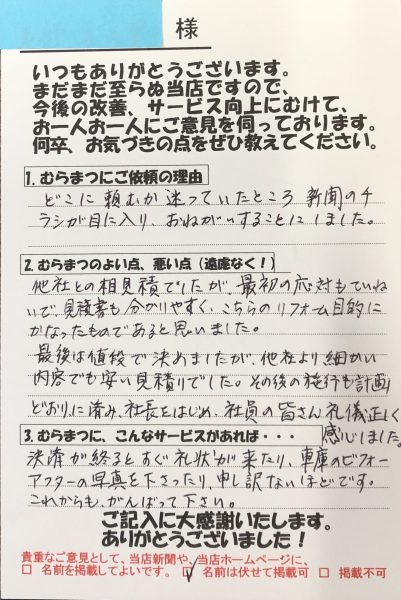 様
いつもありがとうございます。
まだまだ至らぬ当店ですので、
今後の改善、サービス向上にむけて、
お一人お一人にご意見を伺っております。
何卒、お気づきの点をぜひ教えてください。
1. むらまつにご依頼の理由
どこに頼むか迷っていたところ 新聞のチ
ラシが目に入り、おねがいすることにしました。
2. むらまつのよい点、悪い点（遠慮なく！）
他社との相見積でしたが、最初の応対もていね
いで、見積書も分かりやすく、こちらのリフォーム目的に
かなったものであると思いました。
最後は値段で決めましたが、他社より細かい
内容でも安い見積りでした。その後の施行も計画
どおりに済み、社長をはじめ、社員の皆さん礼儀正しく
感心しました。
3. むらまつに、こんなサービスがあれば・・・
決済が終るとすぐ礼状が来たり、車庫のビフォー
アフターの写真を下さったり、申し訳ないほどです。
これからも、がんばって下さい。
ご記入に大感謝いたします。
ありがとうございました！
貴重なご意見として、当店新聞や、当店ホームページに、
□ 名前を掲載してよいです。 ☑ 名前は伏せて掲載可 □ 掲載不可